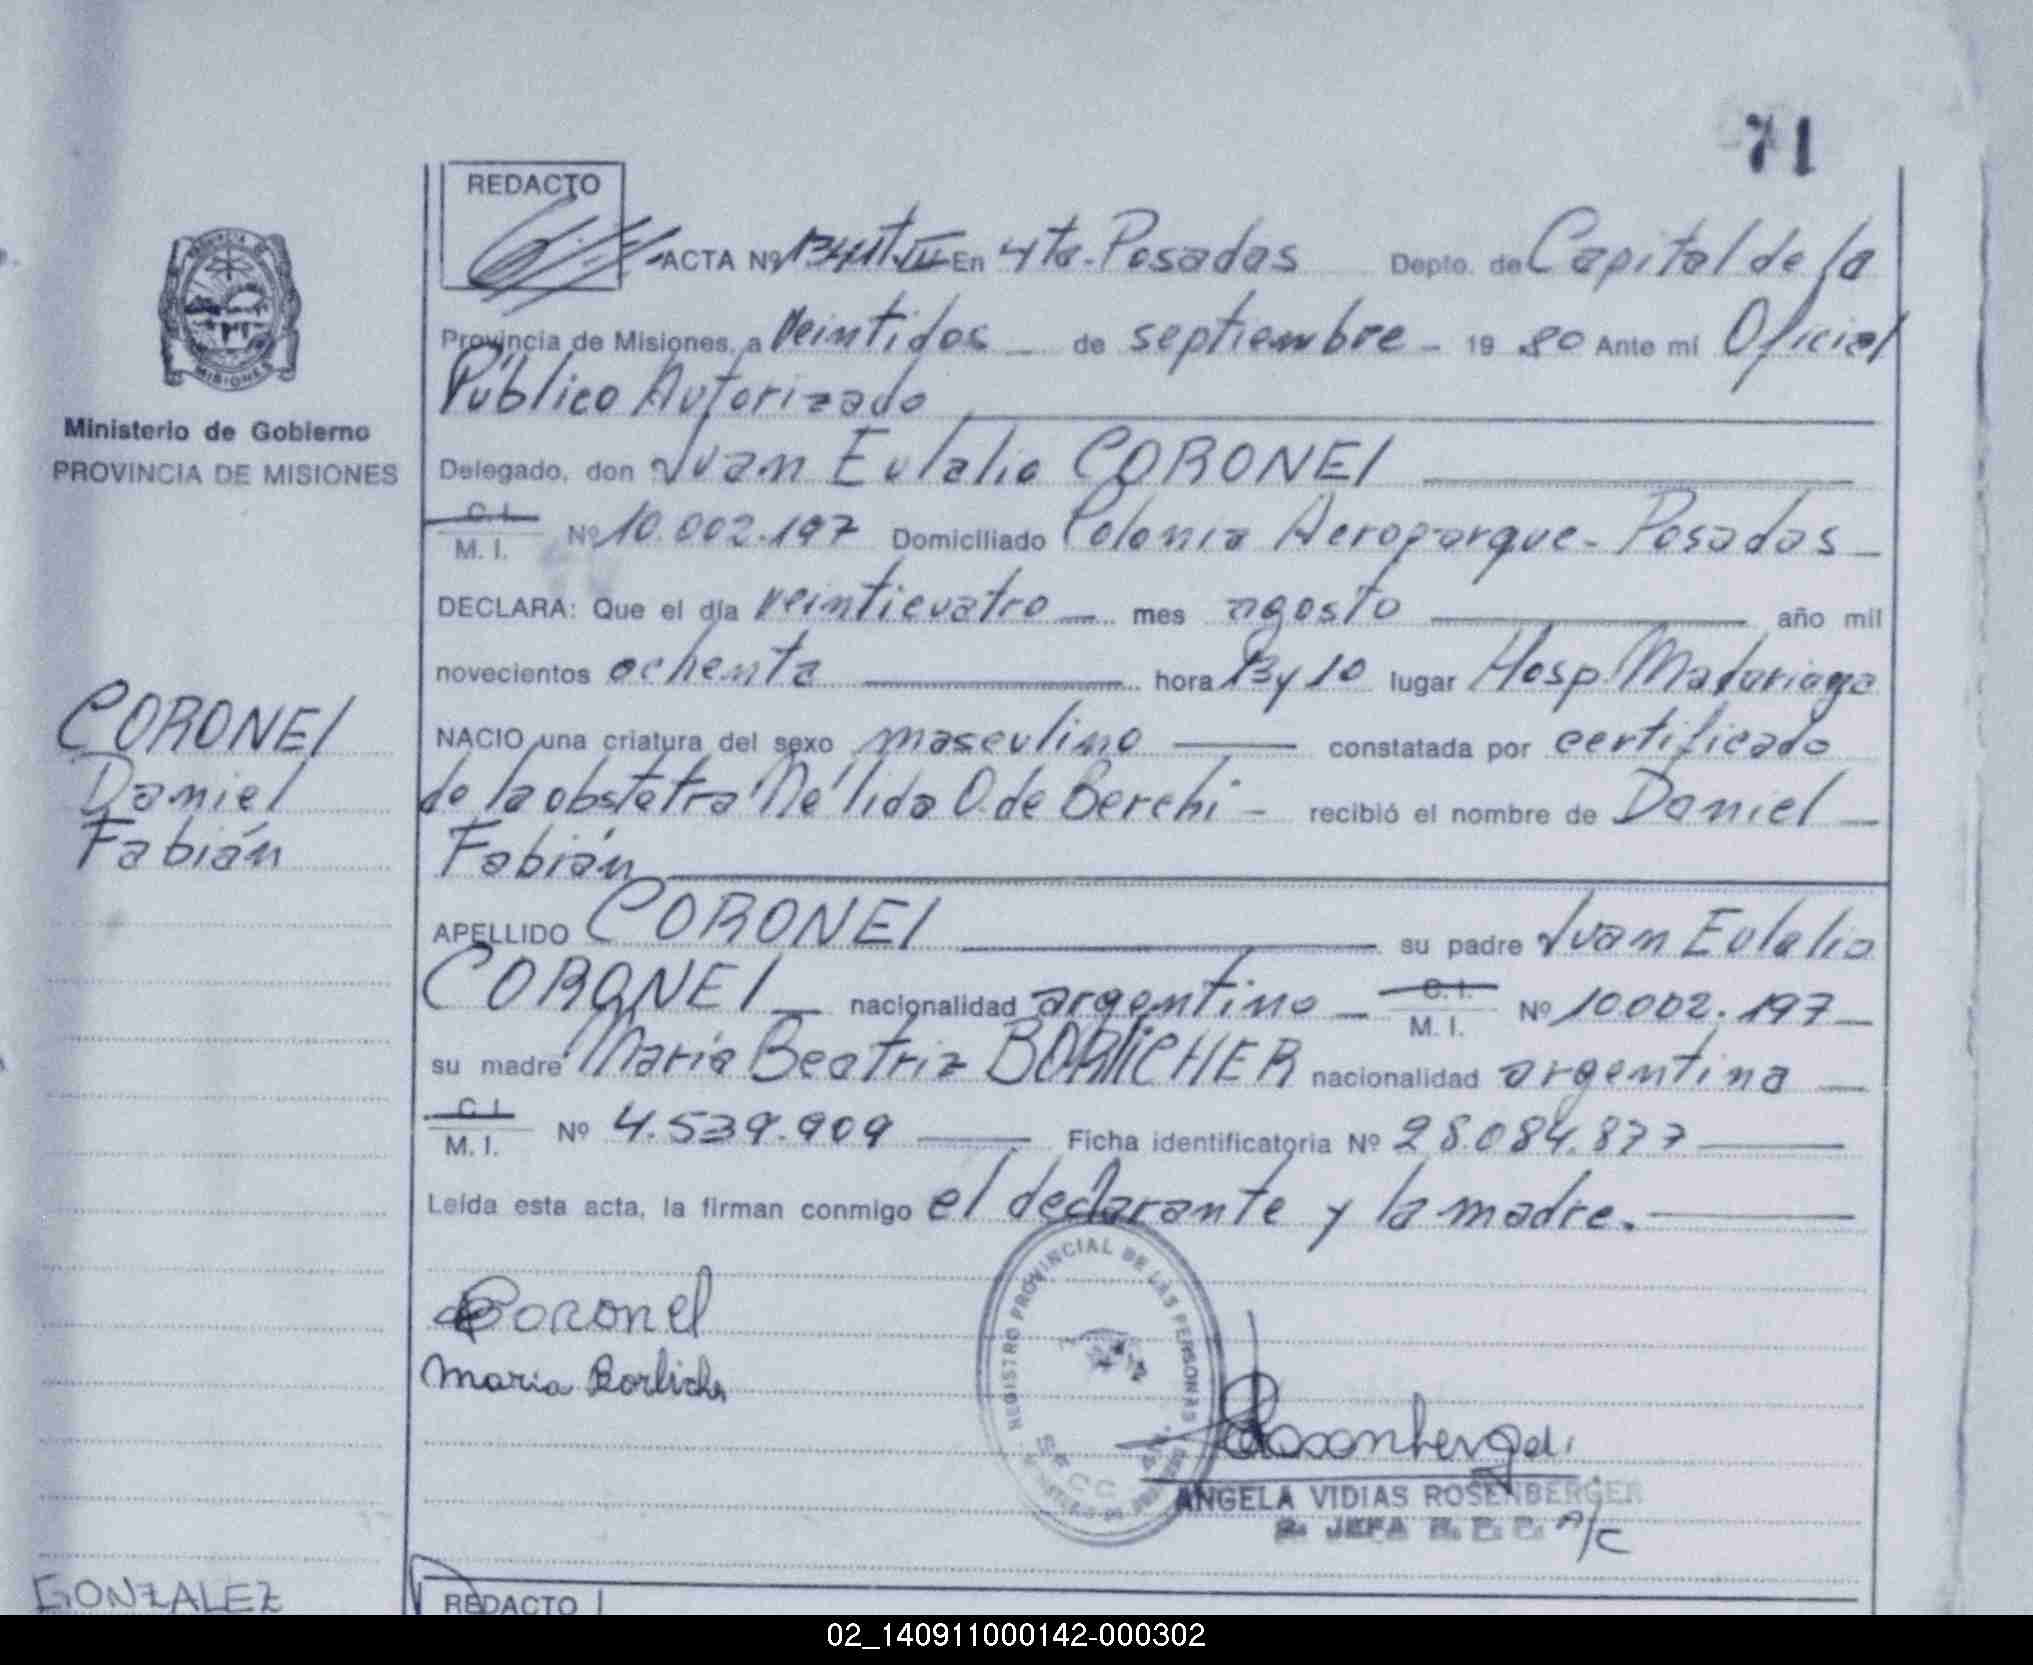 71
REDACTO
ACTA Nº 1341 T.VII En 4ta. Posadas Depto. de Capital de la
Provincia de Misiones, a veintidos de septiembre 19 80 Ante mí Oficial
Público Autorizado
Delegado, don Juan Eulalio CORONEl
C. I.
M. I. Nº 10.002.197 Domiciliado Colonia Aeroparque - Posadas
DECLARA: Que el día veinticuatro mes agosto año mil
novecientos ochenta hora 13 y 10 lugar Hosp. Madariaga
NACIO una criatura del sexo masculino constatada por certificado
de la obstetra Nélida O. de Berchi - recibió el nombre de Daniel
Fabián
APELLIDO CORONEl su padre Juan Eulalio
CORONEl nacionalidad argentino C. I. M. I. Nº 10.002.197
su madre María Beatriz BORLICHER nacionalidad argentina
C. I.
M. I. Nº 4.539.909 Ficha identificatoria Nº 28.084.877
Leída esta acta, la firman conmigo el declarante y la madre.
Coronel
Maria Borlicher
REGISTRO PROVINCIAL DE LAS PERSONAS
Rosenberger
ANGELA VIDIAS ROSENBERGER
JEFA A/C
REDACTO
PROVINCIA DE
MISIONES
Ministerio de Gobierno
PROVINCIA DE MISIONES
CORONEl
Daniel
Fabián
GONZALEZ
02_140911000142-000302